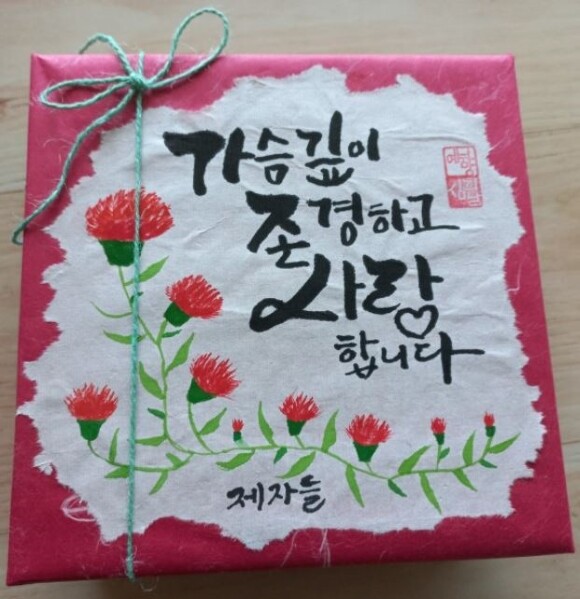 가슴깊이
존경하고
사랑
합니다
제자들